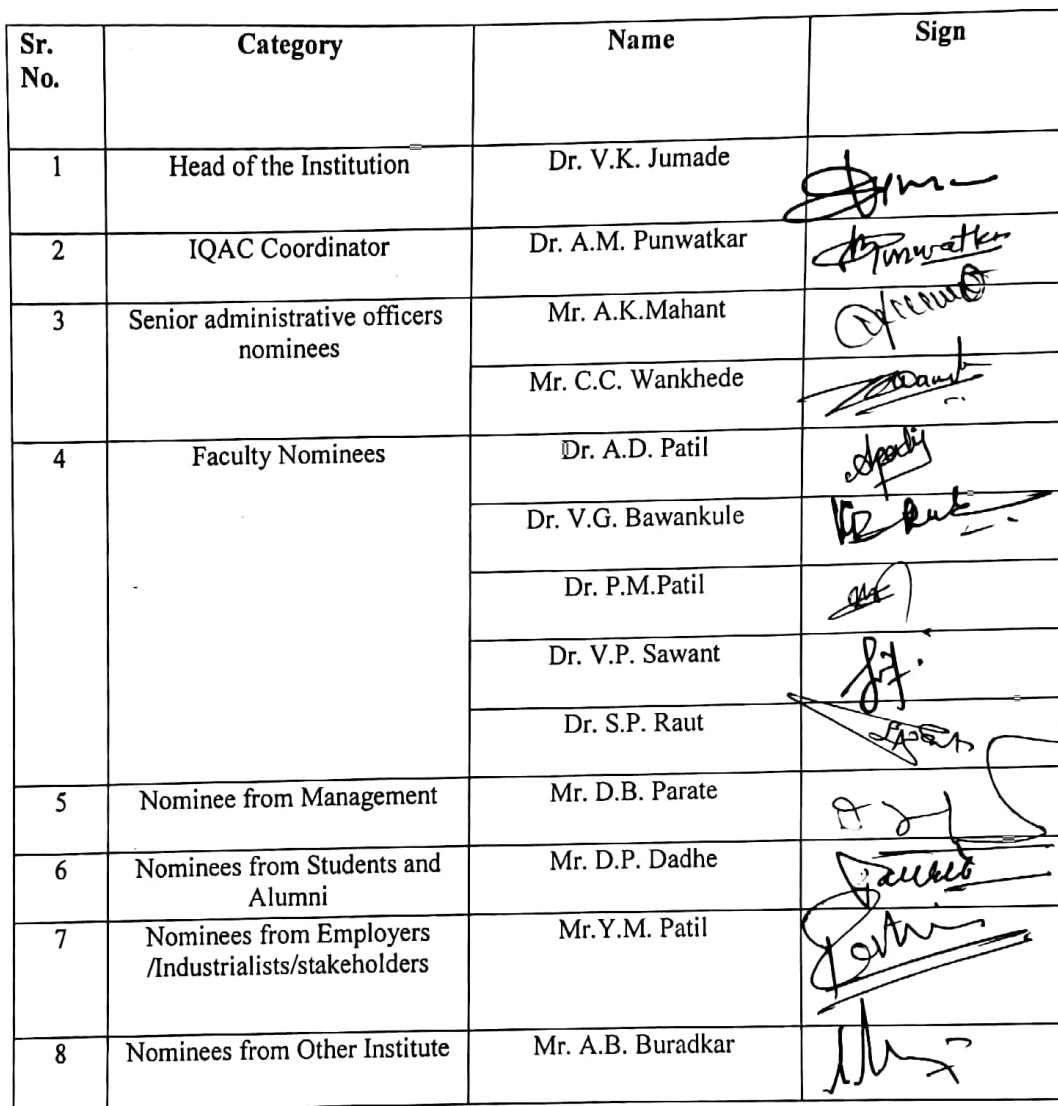 Sr. No. Category Name Sign
1 Head of the Institution Dr. V.K. Jumade
2 IQAC Coordinator Dr. A.M. Punwatkar Punwatkar
3 Senior administrative officers nominees Mr. A.K.Mahant
Mr. C.C. Wankhede
4 Faculty Nominees Dr. A.D. Patil
Dr. V.G. Bawankule
Dr. P.M.Patil
Dr. V.P. Sawant
Dr. S.P. Raut
5 Nominee from Management Mr. D.B. Parate
6 Nominees from Students and Alumni Mr. D.P. Dadhe
7 Nominees from Employers /Industrialists/stakeholders Mr.Y.M. Patil
8 Nominees from Other Institute Mr. A.B. Buradkar